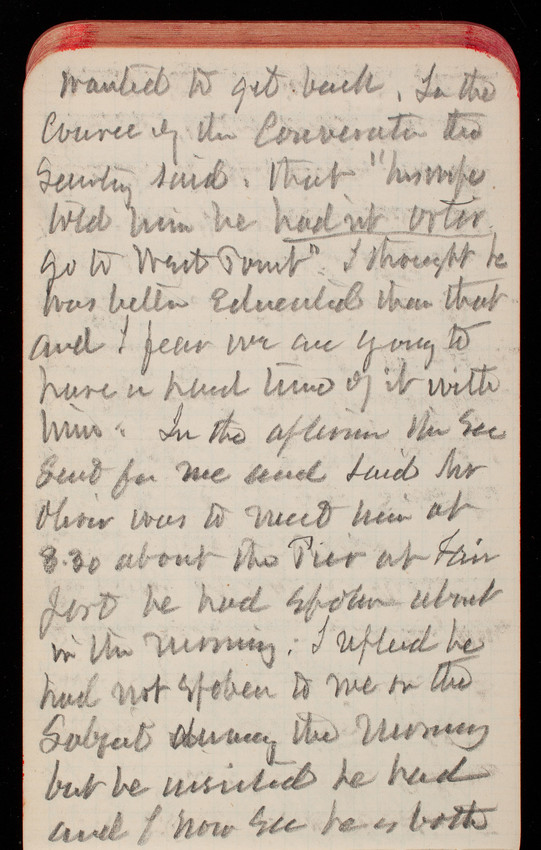 wanted to get back. In the
Course of the Conversation the
Secretary said. that "his wife
told him he had'nt orter
go to West Point". I thought he
was better Educated than that
and I fear we are going to
have a hard time of it with
him. In the afternoon the Sec
Sent for me and said Mr
Oliver was to meet him at
3.30 about the Pier at Fair
Port he had spoken about
in the morning. I replied he
had not spoken to me on the
Subject during the morning
but he insisted he had
and I now see he is both